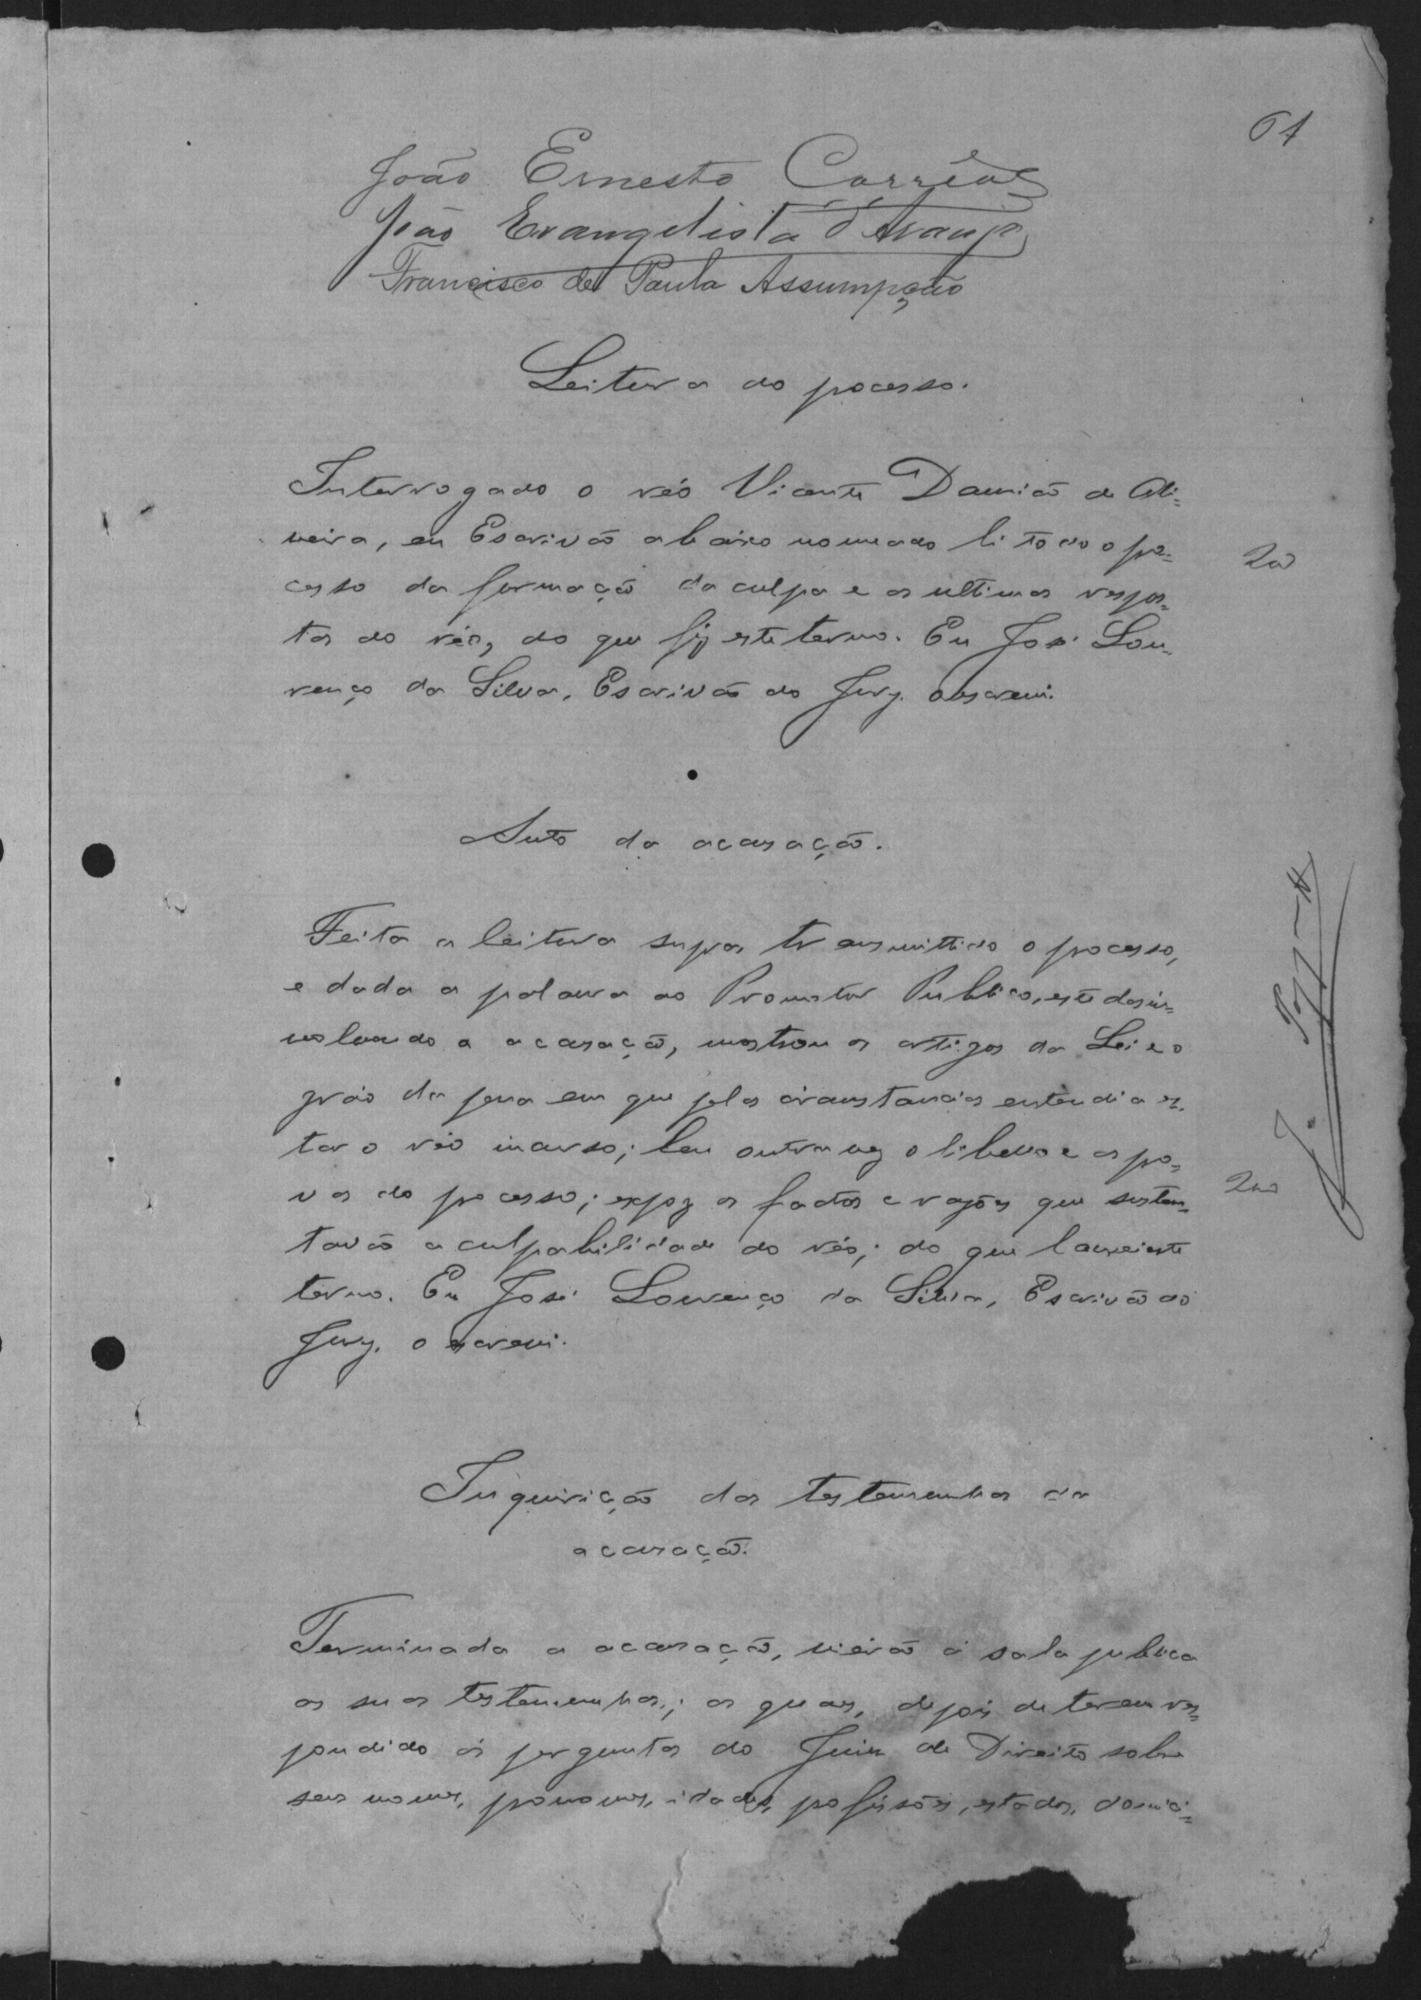 61
João Ernesto Corrêa
João Evangelista d'Araujo
Francisco de Paula Assumpção
Leitura do pocesso.
Interrogado o réo Vicente Damião de Oli-
veira, eu Escrivão abaixo nomeado li todo o po-
cesso da formação da culpa e as ultimas respos-
tas do réo, do que fiz este termo. Eu José Lou-
renço da Silva, Escrivão do Jury. o escrevi.
Auto da acusação.
Feita a leitura supra, transmittido o pocesso,
e dada a palavra ao Promotor Publico, este desin-
volvendo a acusação, mostrou os artigos da Lei e o
gráo da pena em que pelas circunstancias entendia es-
tar o réo incurso; leu outra vez o libello e as po-
vas do pocesso; expoz os factos e razões que susten-
tavão a culpabilidade do réo; do que lavrei este
termo. Eu José Lourenço da Silva, Escrivão do
Jury. o escrevi.
Inquirição das testemunhas da
acusação.
Terminada a acusação, vierão á sala publica
as suas testemunhas; as quaes, depois de terem res-
pondido ás perguntas do Juiz de Direito sobre
seus nomes, ponomes, idades, pofissões, estados, domici-